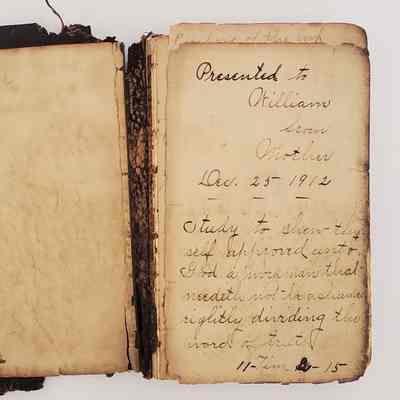 of the
Presented to
William
from
Mother
Dec. 25 1912
Study to show thy
self approved unto
God a workman that
needeth not be ashamed
rightly dividing the
word of truth
11-Tim 2-15